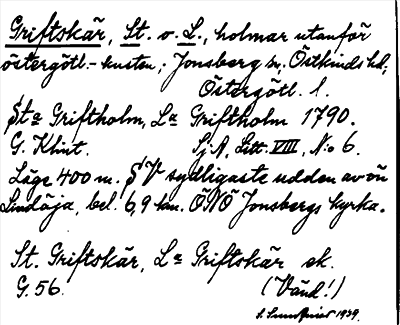 Griftskär, St. o. L., holmar utanför
östergötl.-kusten; Jonsberg sn; Östkinds hd;
Östergötl. l.
Sta Griftholm, La Griftholm 1790.
G. Klint. Sj A, Litt. VIII, No 6.
Läge 400 m. SV sydligaste udden av ön
Lindöja, bel. 6,9 km. ÖNÖ Jonsbergs kyrka.
St. Griftskär, La Griftskär ek.
G. 56. (Vänd!)
1939.